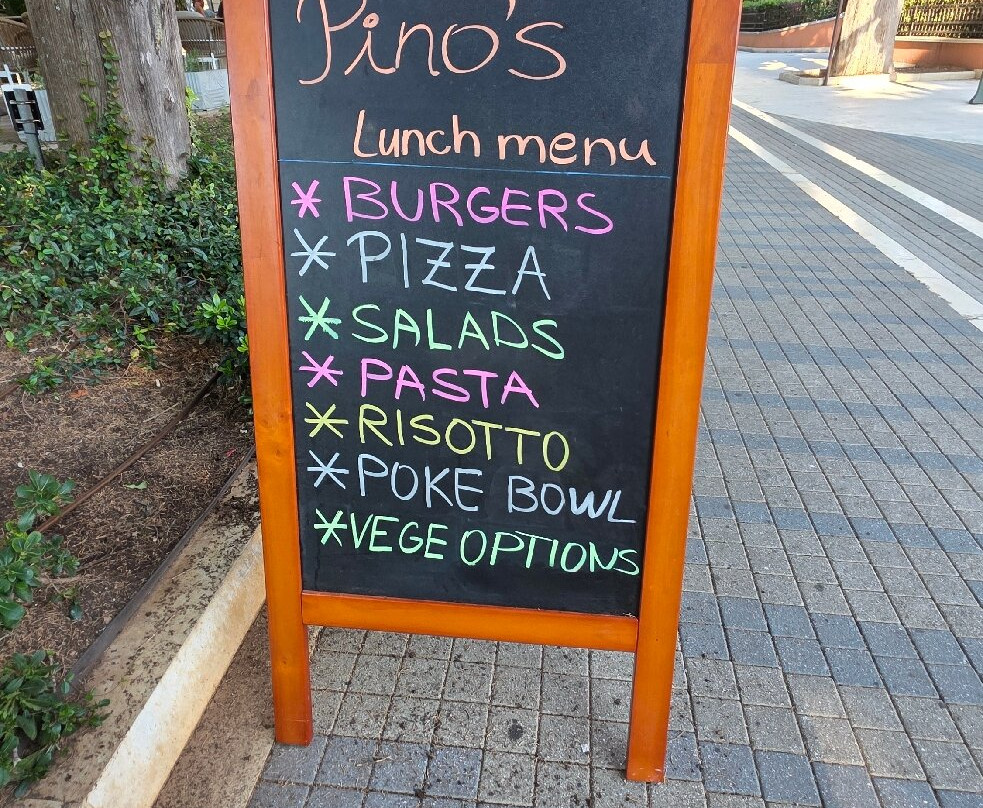 Pino's
Lunch menu
* BURGERS
* PIZZA
* SALADS
* PASTA
* RISOTTO
* POKE BOWL
* VEGE OPTIONS